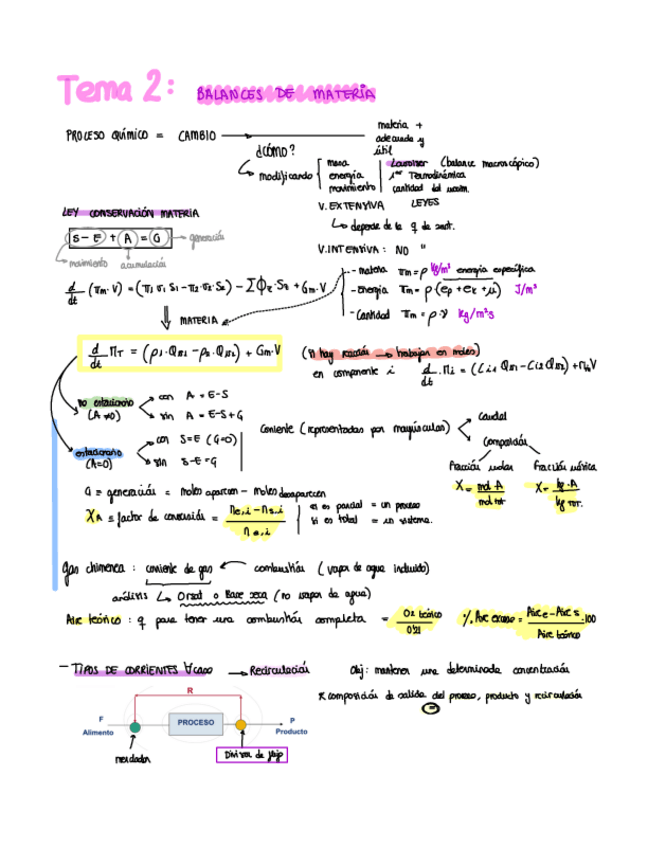 Tema 2: BALANCES DE MATERIA
PROCESO QUÍMICO = CAMBIO → materia + adecuada y útil
¿CÓMO?
modificando
masa
energía
movimiento
Lavoisier (balance macroscópico)
1er Termodinámica
cantidad del movim.
LEYES
V. EXTENSIVA
depende de la q de mat.
V. INTENSIVA : NO "
LEY CONSERVACIÓN MATERIA
S - E + A = G → generación
movimiento acumulación
d/dt (πm · V) = (π1 v1 S1 - π2 v2 S2) - ΣΦ S + Gm · V
- materia πm = ρ kg/m³ energía específica
- Energía πm = ρ · (ep + ek + μ) J/m³
- Cantidad πm = ρ · v kg/m²s
MATERIA
d/dt MT = (ρ1 · Qv1 - ρ2 · Qv2) + Gm · V
(si hay reacción → trabajar en moles)
en componente i
no estacionario (A≠0)
con A = E - S
sin A = E - S + G
estacionario (A=0)
con S = E (G=0)
sin S - E = G
Corriente (representadas por mayúsculas)
Caudal
Composición
Fracción molar
X = mol A / mol tot
Fracción másica
X = kg A / kg TOT.
G ≡ generación = moles aparecen - moles desaparecen
XA ≡ factor de conversión = (ne,i - ns,i) / ne,i
si es parcial = un proceso
si es total = un sistema.
Gas chimenea : corriente de gas ← combustión (vapor de agua incluido)
análisis → Orsat o Base seca (no vapor de agua)
Aire teórico : q para tener una combustión completa = O2 teórico / 0'21
% Aire exceso = (Aire e - Aire s) / Aire teórico · 100
- TIPOS DE CORRIENTES → Recirculación
Obj: mantener una determinada concentración
x composición de salida del proceso, producto y recirculación
=
R
F
Alimento
PROCESO
P
Producto
mezclador
Divisor de flujo